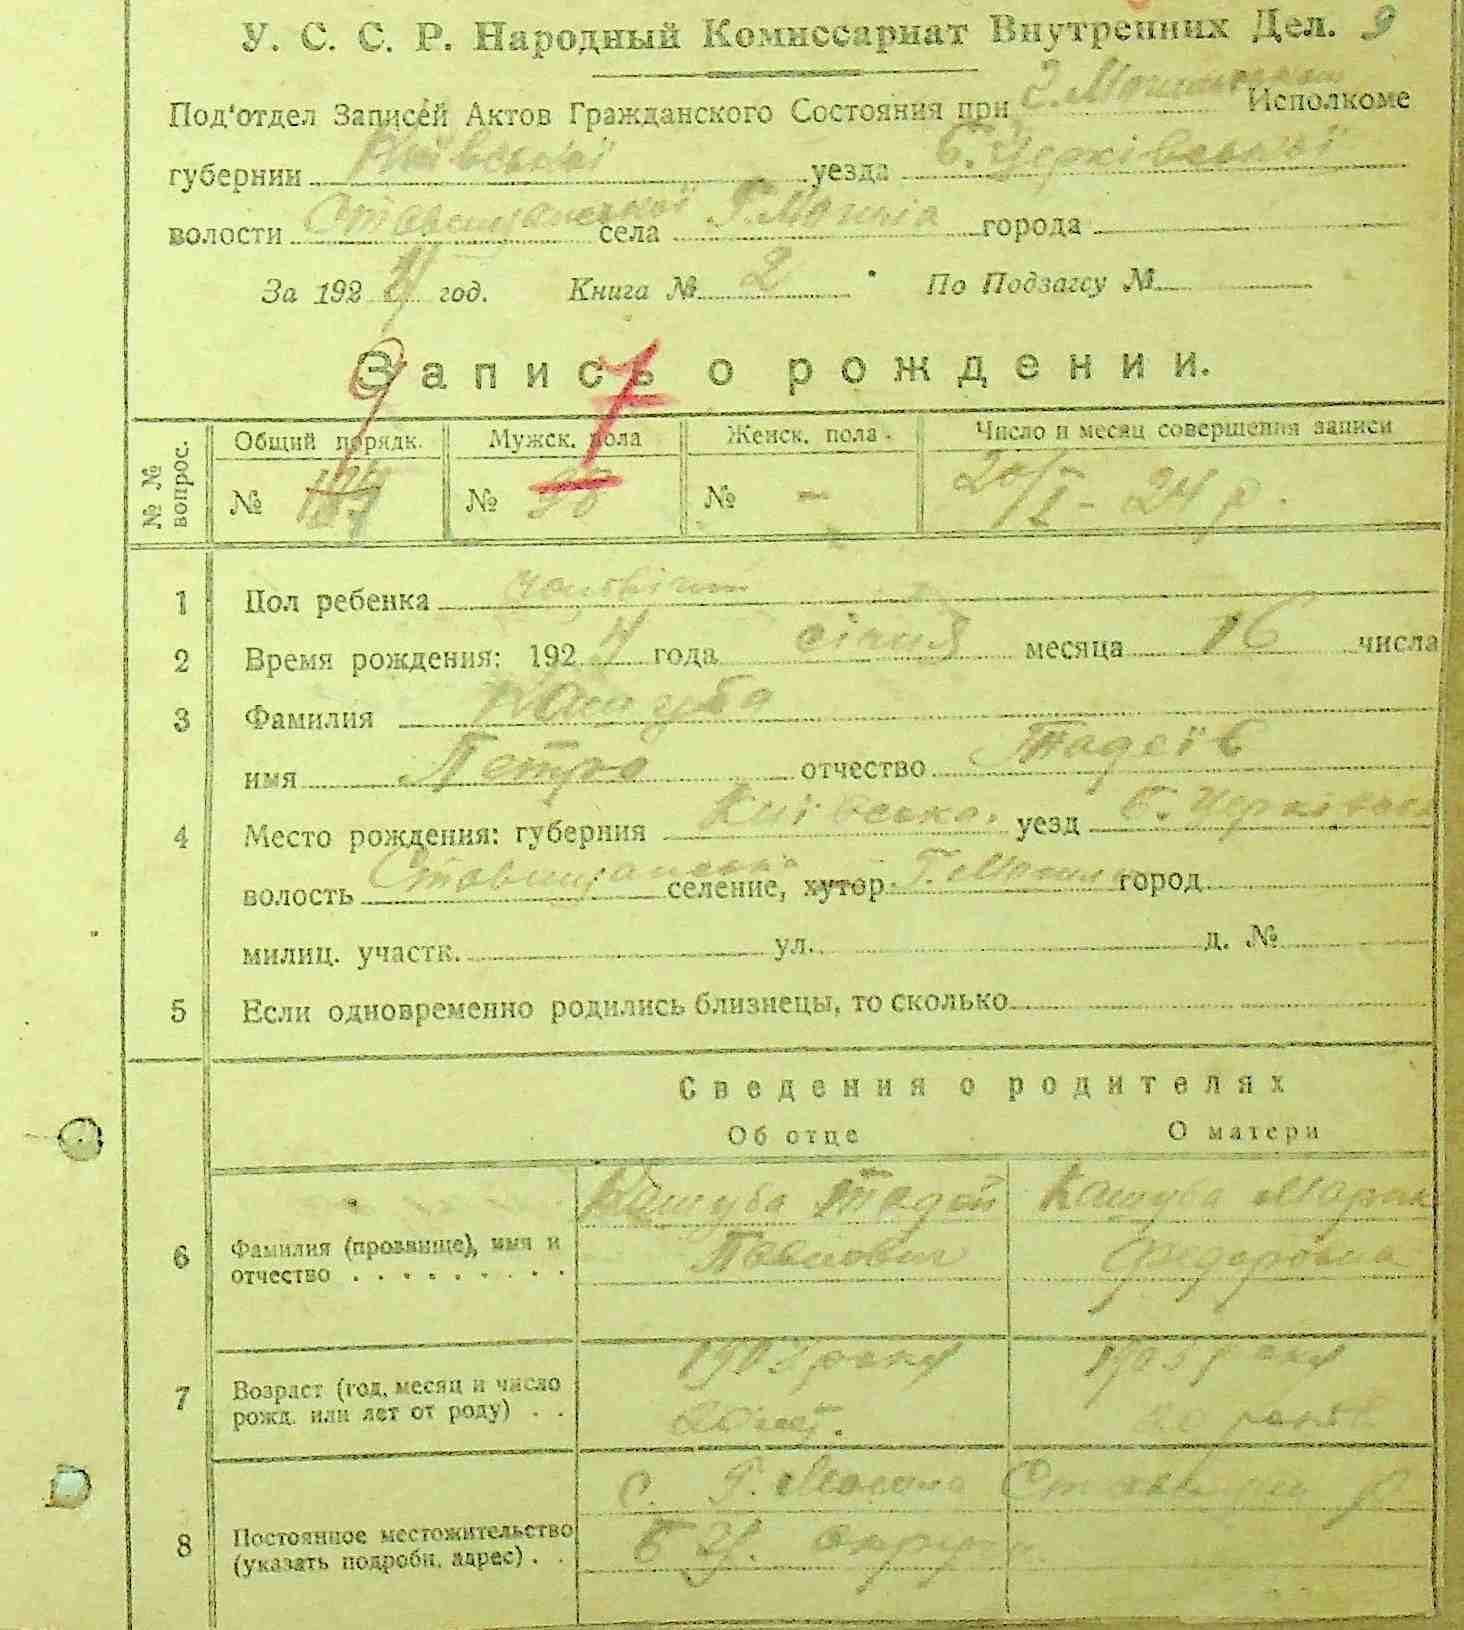 У. С. С. Р. Народный Комиссариат Внутренних Дел. 9
Под'отдел Записей Актов Гражданского Состояния при Исполкоме
губернии Київської уезда Б. Церківської
волости Ставищанської села Г. Могила города
За 1924 год. Книга № 2 По Подзагсу №
Запись о рождении.
7
№№ вопрос. Общий порядк. Мужск. пола Женск. пола Число и месяц совершения записи
№ № № - 20/I - 24 р.
1 Пол ребенка
2 Время рождения: 1924 года січня месяца 16 числа
3 Фамилия Кашуба
имя Петро отчество Тадеїв
4 Место рождения: губерния Київська уезд Б. Церківськ
волость Ставищанська селение, хутор Г. Могила город
милиц. участк. ул. д. №
5 Если одновременно родились близнецы, то сколько
Сведения о родителях
Об отце О матери
Кашуба Тадей Кашуба
6 Фамилия (прозвище), имя и
отчество Павлович Федоровна
7 Возраст (год, месяц и число
рожд. или лет от роду)
с. Г. Могила
8 Постоянное местожительство
(указать подробн. адрес) Б Ц. округи